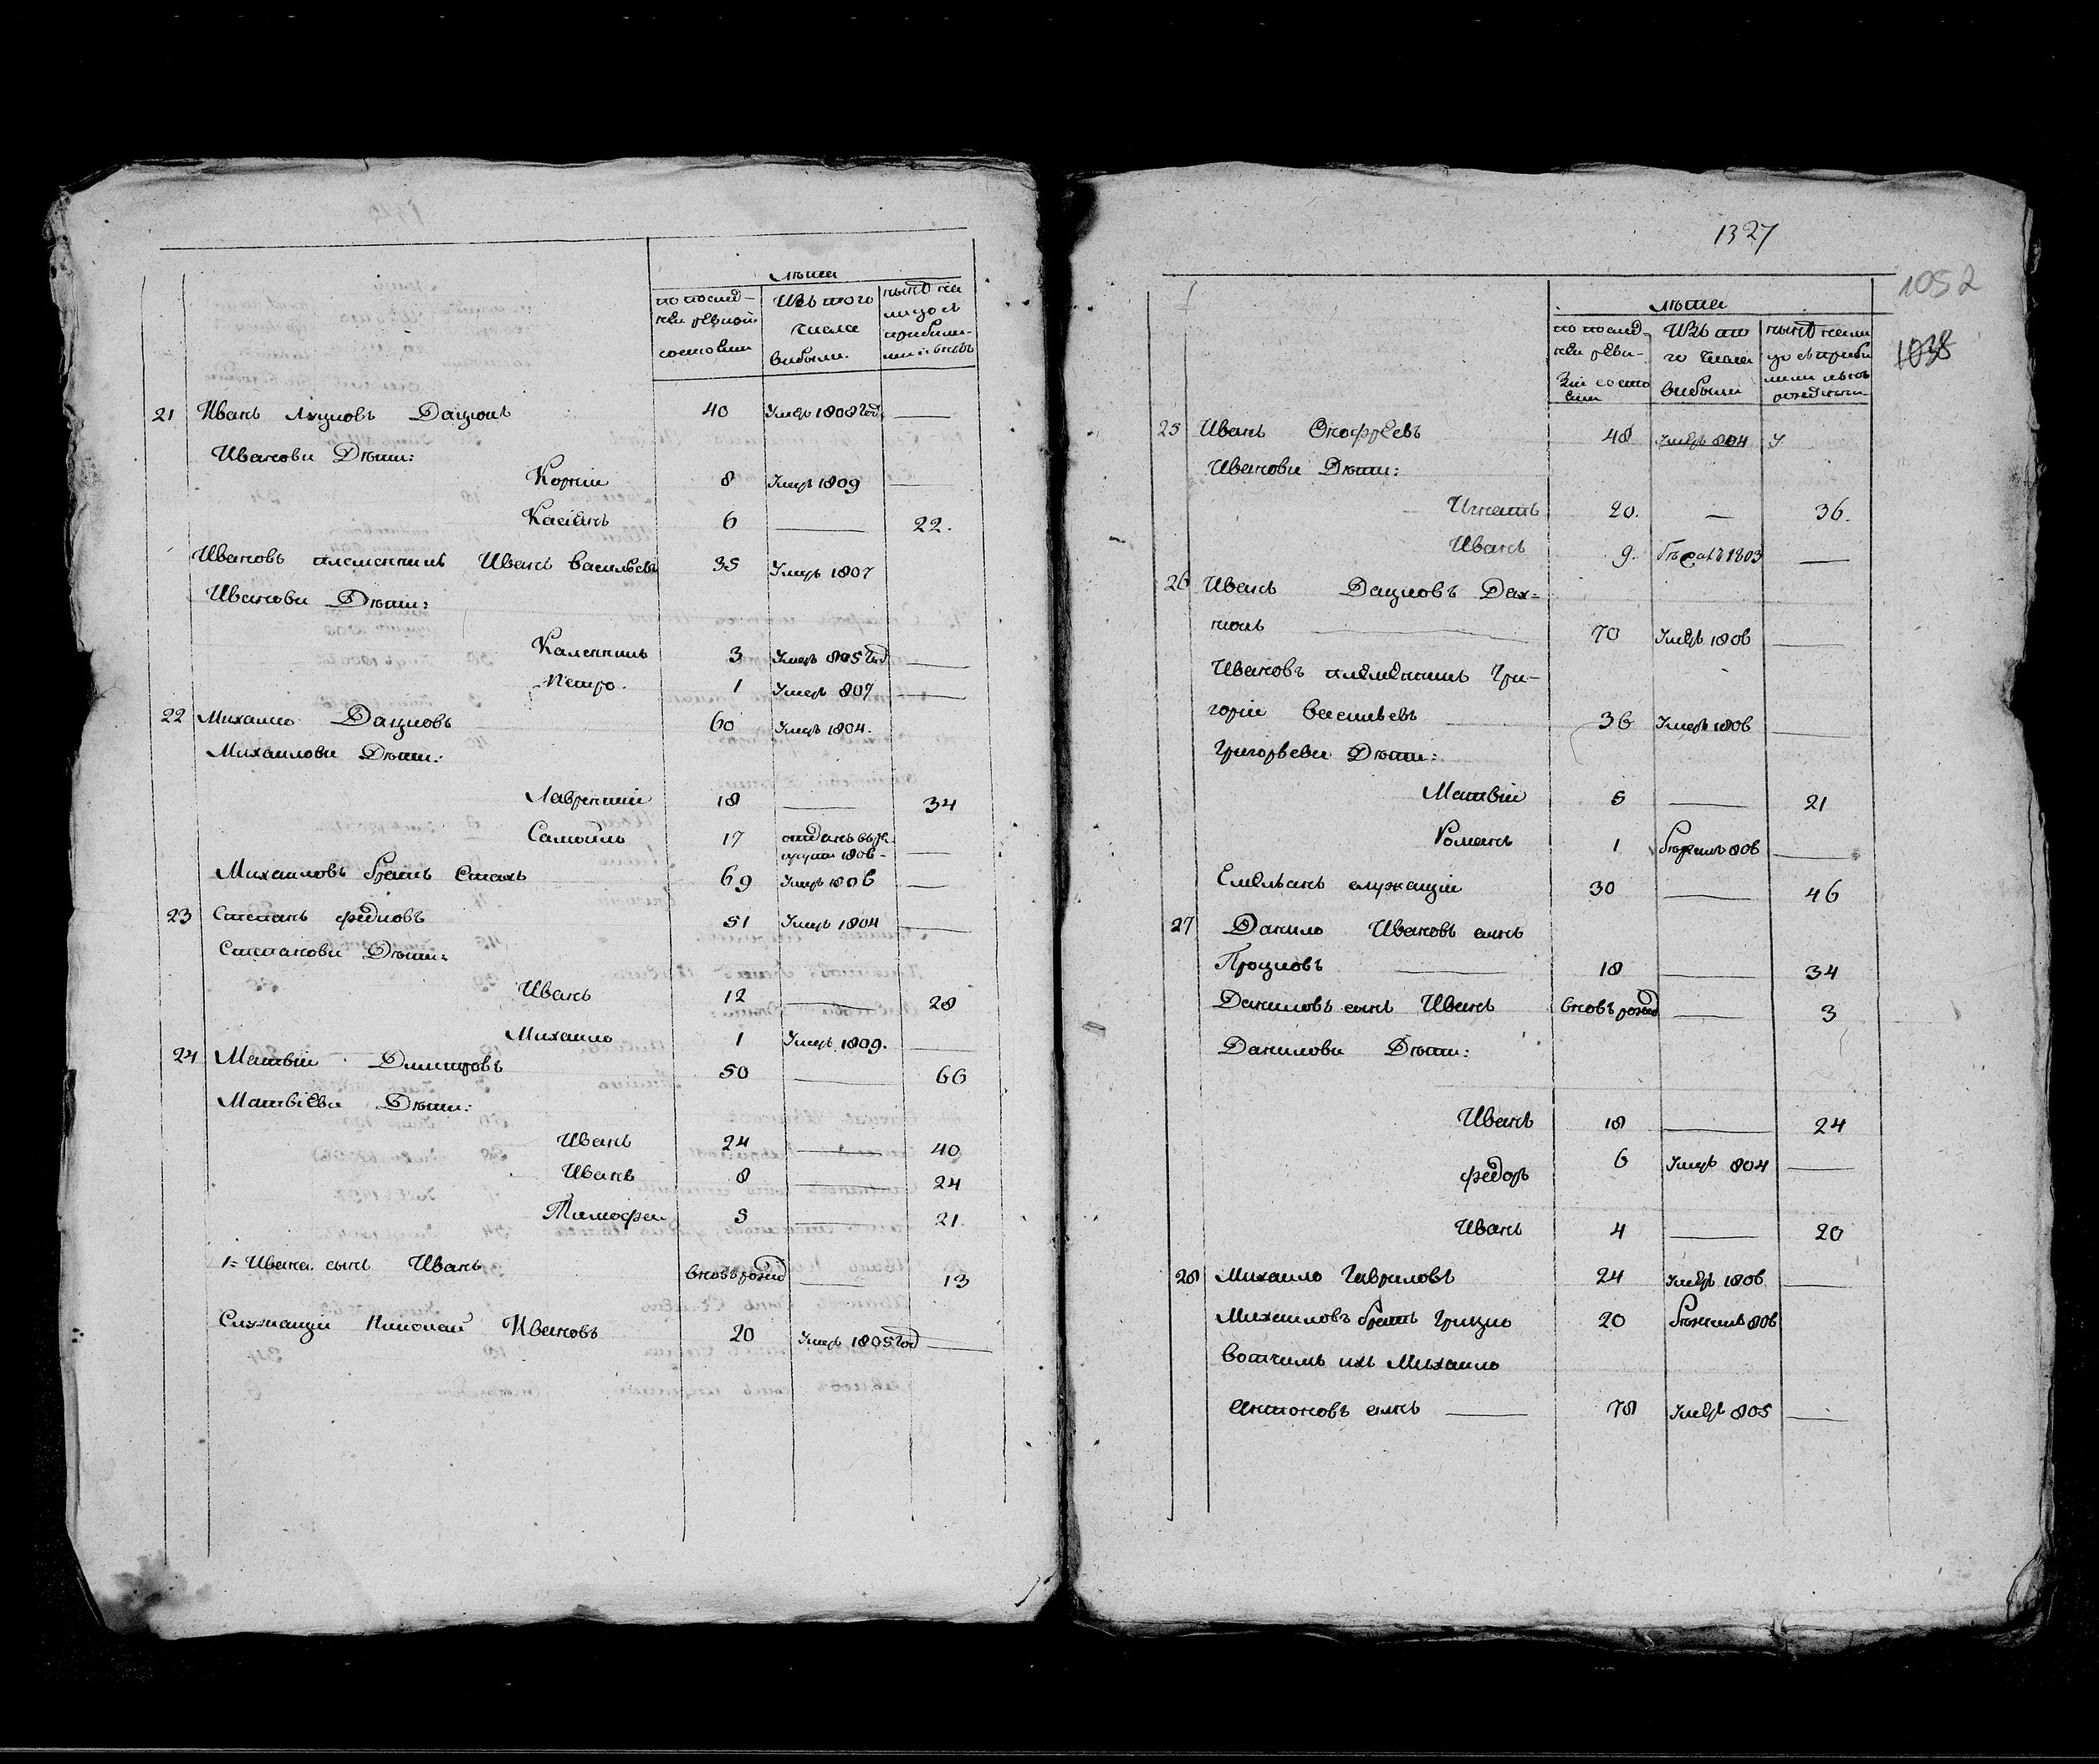 лѣта
по послѣд-
ней ревизіи
состояли
Изъ того
числа
выбыли.
нынѣ на
лицо съ
прибыли-
ми и вновь
21 Иванъ Дацюкъ 40 Умеръ 1808 год. —
Ивановы Дѣти:
Корній 8 Умеръ 1809 —
Касіянъ 6 — 22.
Ивановъ племянникъ Иванъ Васильевъ 35 Умеръ 1807
Ивановы Дѣти:
Каленникъ 3 Умеръ 805 год —
Петро. 1 Умеръ 807 —
22 Михайло Дацковъ 60 Умеръ 1804.
Михайловы Дѣти:
Лаврентій 18 — 34
Самойлъ 17 отданъ въ ре-
круты 1806 —
Михайловъ братъ Стахъ 69 Умеръ 1806 —
23 Степанъ Федковъ 51 Умеръ 1804 —
Степановы Дѣти:
Иванъ 12 — 28
Михайло 1 Умеръ 1809. —
24 Матвій Дмитровъ 50 — 66
Матвіевы Дѣти:
Иванъ 24 — 40
Иванъ 8 — 24
Тимофей 5 — 21
1= Ивана сынъ Иванъ вновь рожд — 13
Служащій Николай Ивановъ 20 Умеръ 1805 год —
1327
1052
1038
лѣта
по послѣд-
ней реви-
зіи состо
яли
Изъ то
го числа
выбыли
нынѣ нали
цо съ прибы
лыми и вновь
рожденны-
25 Иванъ Онофреевъ 48 Умеръ 804 У
Ивановы Дѣти:
Игнатъ 20. — 36.
Иванъ 9. бѣжалъ 1803 —
26 Иванъ Дацковъ Дах-
нюкъ — 70 Умеръ 1806 —
Ивановъ племенникъ Гри-
горій Васильевъ — 36 Умеръ 1806 —
Григорьевы Дѣти:
Матвій 5 — 21
Романъ 1 бѣжалъ 806 —
Емельянъ служащій 30 — 46
27 Данило Ивановъ сынъ
Процковъ — 18 — 34
Даниловъ сынъ Иванъ вновь рожд — 3
Даниловы Дѣти:
Иванъ 18 — 24
Федоръ 6 Умеръ 804 —
Иванъ 4 — 20
28 Михайло Гавриловъ 24 Умеръ 1806 —
Михайловъ братъ Грицко 20 бѣжалъ 806
Вотчимъ ихъ Михайло
Антоновъ сынъ — 78 Умеръ 805 —